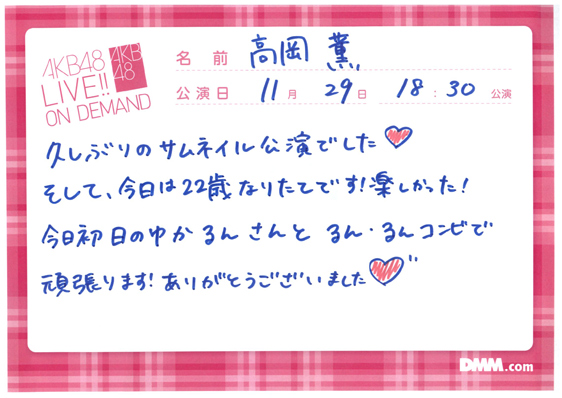 AKB48
LIVE!!
ON DEMAND
AKB
48
名前 高岡 薫
公演日 11月 29日 18:30 公演
久しぶりのサムネイル公演でした
そして、今日は22歳なりたてです!楽しかった!
今日初日のゆかるんさんと るん・るんコンビで
頑張ります!ありがとうございました
DMM.com